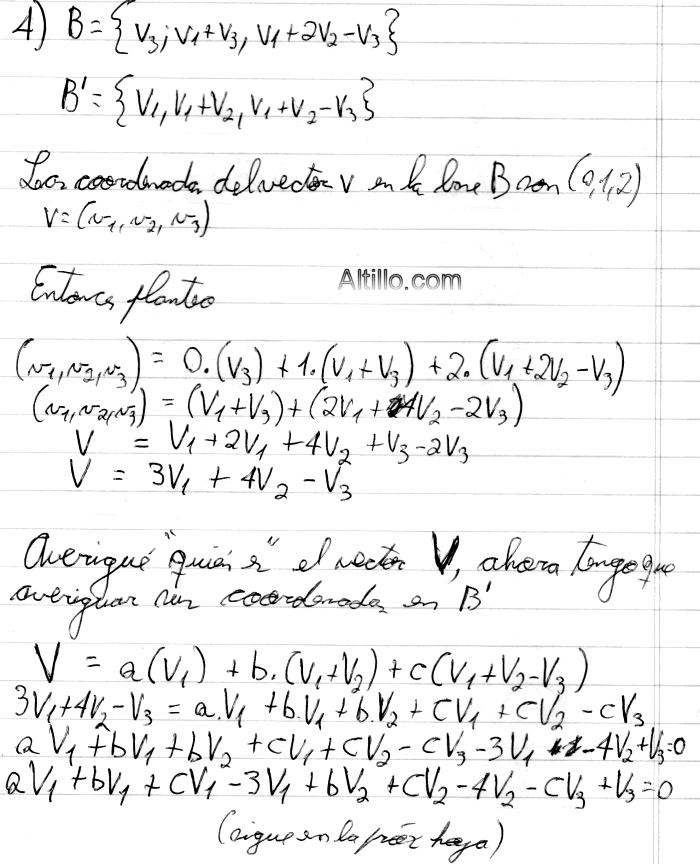 4) B = {V₃; V₁+V₃, V₁+2V₂-V₃}
B' = {V₁, V₁+V₂, V₁+V₂-V₃}
Las coordenadas del vector V en la base B son (0,1,2)
V = (v₁, v₂, v₃)
Altillo.com
Entonces planteo
(v₁, v₂, v₃) = 0.(V₃) + 1.(V₁+V₃) + 2.(V₁+2V₂-V₃)
(v₁, v₂, v₃) = (V₁+V₃) + (2V₁+4V₂-2V₃)
V = V₁+2V₁+4V₂+V₃-2V₃
V = 3V₁ + 4V₂ - V₃
Averigué "quién es" el vector V, ahora tengo que
averiguar sus coordenadas en B'
V = a(V₁) + b.(V₁+V₂) + c(V₁+V₂-V₃)
3V₁+4V₂-V₃ = a.V₁ + b.V₁ + b.V₂ + cV₁ + cV₂ - cV₃
aV₁ + bV₁ + bV₂ + cV₁ + cV₂ - cV₃ - 3V₁ - 4V₂ + V₃ = 0
aV₁ + bV₁ + cV₁ - 3V₁ + bV₂ + cV₂ - 4V₂ - cV₃ + V₃ = 0
(sigue en la próx hoja)